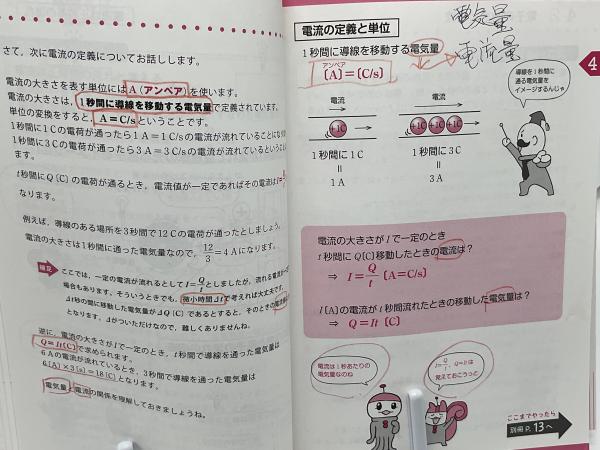 さて、次に電流の定義についてお話しします。
電流の大きさを表す単位にはA(アンペア)を使います。
電流の大きさは、1秒間に導線を移動する電気量で定義されています。
単位の変換をすると、A=C/sということです。
1秒間に1Cの電荷が通ったら1A=1C/sの電流が流れていることになり
1秒間に3Cの電荷が通ったら3A=3C/sの電流が流れているというこ
ます。
t秒間にQ〔C〕の電荷が通るとき、電流値が一定であればその電流は
なります。
例えば、導線のある場所を3秒間で12Cの電荷が通ったとしましょう。
電流の大きさは1秒間に通った電気量なので、12/3=4Aになります。
補足 ここでは、一定の電流が流れるとしてI=Q/tとしましたが、流れる電流が
場合もあります。そういうときでも、微小時間Δtで考えれば大丈夫です。
Δt秒の間に移動した電気量がΔQ〔C〕であるとすると、そのときの電流
となります。Δがついただけなので、難しくありませんね。
逆に、電流の大きさがIで一定のとき、t秒間で導線を通った電気量は
Q=It〔C〕で求められます。
6Aの電流が流れているとき、3秒間で導線を通った電気量は
6〔A〕×3〔s〕=18〔C〕となります。
電気量と電流の関係を理解しておきましょうね。
電気量
電流の定義と単位
1秒間に導線を移動する電気量
電流量
アンペア
〔A〕=〔C/s〕
4
導線を1秒間に
通る電気量を
イメージするんじゃ
電流 電流
+1C +1C +1C +1C
1秒間に1C 1秒間に3C
= =
1A 3A
電流の大きさがIで一定のとき
t秒間にQ〔C〕移動したときの電流は?
⇒ I=Q/t〔A=C/s〕
I〔A〕の電流がt秒間流れたときの移動した電気量は?
⇒ Q=It〔C〕
電流は1秒あたりの
電気量なのね
I=Q/t、Q=Itは
覚えておこうっと
ここまでやったら
別冊P.13へ